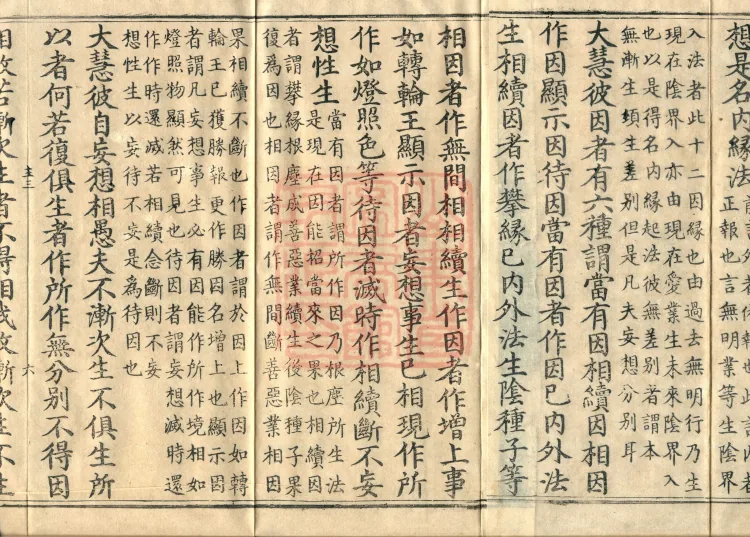 想是名內緣法
正報也言無明業等生陰界
入法者此十二因緣也由過去無明行乃生
現在陰界入亦由現在愛業生未來陰界入
也以是得名內緣起法彼無差別者謂本
無漸生頓生差別但是凡夫妄想分別耳
大慧彼因者有六種謂當有因相續因相因
作因顯示因待因當有因者作因已內外法
生相續因者作攀緣已內外法生陰種子等
相因者作無間相相續生作因者作增上事
如轉輪王顯示因者妄想事生已相現作所
作如燈照色等待因者滅時作相續斷不妄
想性生
當有因者謂所作因乃根塵所生法
是現在因能招當來之果也相續因
者謂攀緣根塵成善惡業續生後陰種子果
復爲因也相因者謂作無間斷善惡業相因
果相續不斷也作因者謂於因上作因如轉
輪王已獲勝報更作勝因名增上也顯示因
者謂凡妄想事生必有因能作所作境相如
燈照物顯然可見也待因者謂妄想滅時還
作作時還滅若相續念斷則不妄
想性生以妄待不妄是為待因也
大慧彼自妄想相愚夫不漸次生不俱生所
以者何若復俱生者作所作無分別不得因
六
相故若漸次生者不得相我故漸次生不生